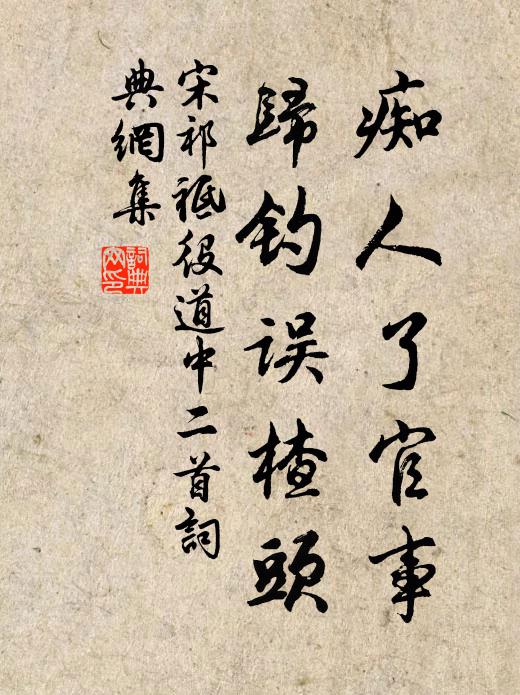 痴人了官事
歸釣误楂頭
宋祁祗役道中二首詞
典網集
詞典文印